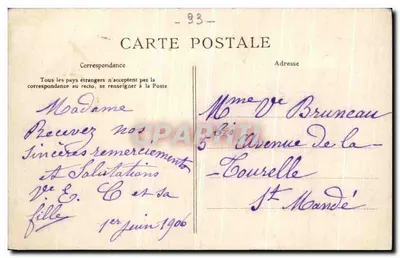 - 93 -
CARTE POSTALE
Correspondance
Tous les pays étrangers n'acceptent pas la
correspondance au recto, se renseigner à la Poste
Madame
Recevez nos
sincères remerciements
et Salutations
Vve E. C et sa
fille
1er juin 1906
Adresse
Mme Ve Bruneau
5bis Avenue de la
Tourelle
St Mandé